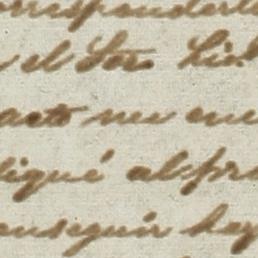 orresponderl
el Sor. Lin
acto me enc
liqué al pro
onseguir hay